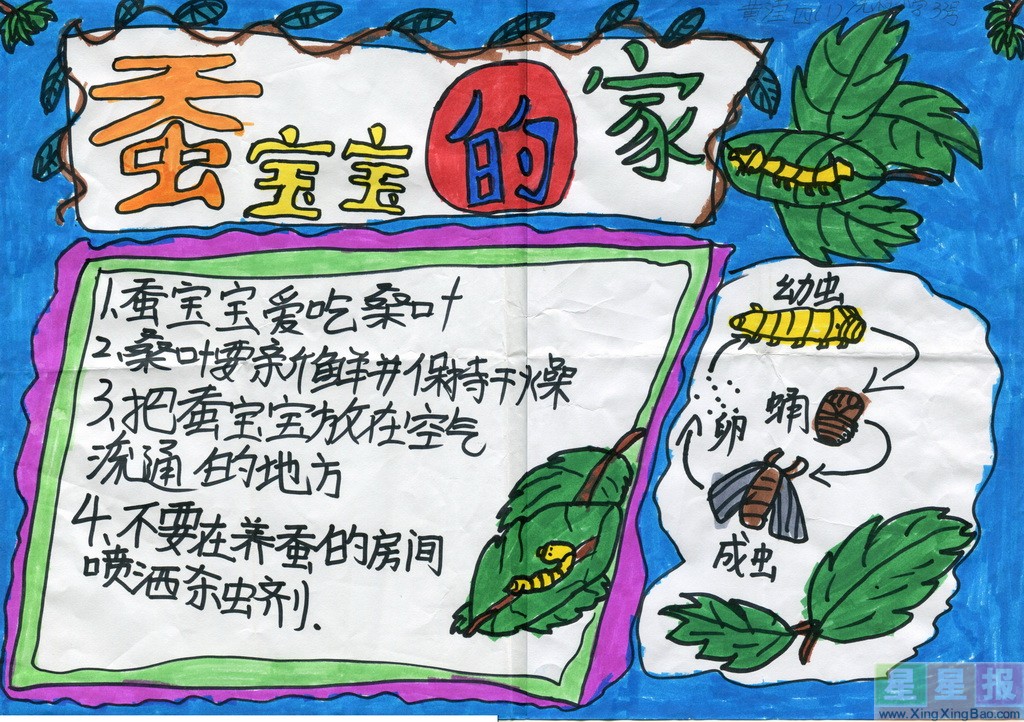 蚕宝宝的家
1.蚕宝宝爱吃桑叶
2.桑叶要新鲜并保持干燥
3.把蚕宝宝放在空气
流通的地方
4.不要在养蚕的房间
喷洒杀虫剂.
幼虫
蛹
卵
成虫
星星报
www.XingXingBao.com